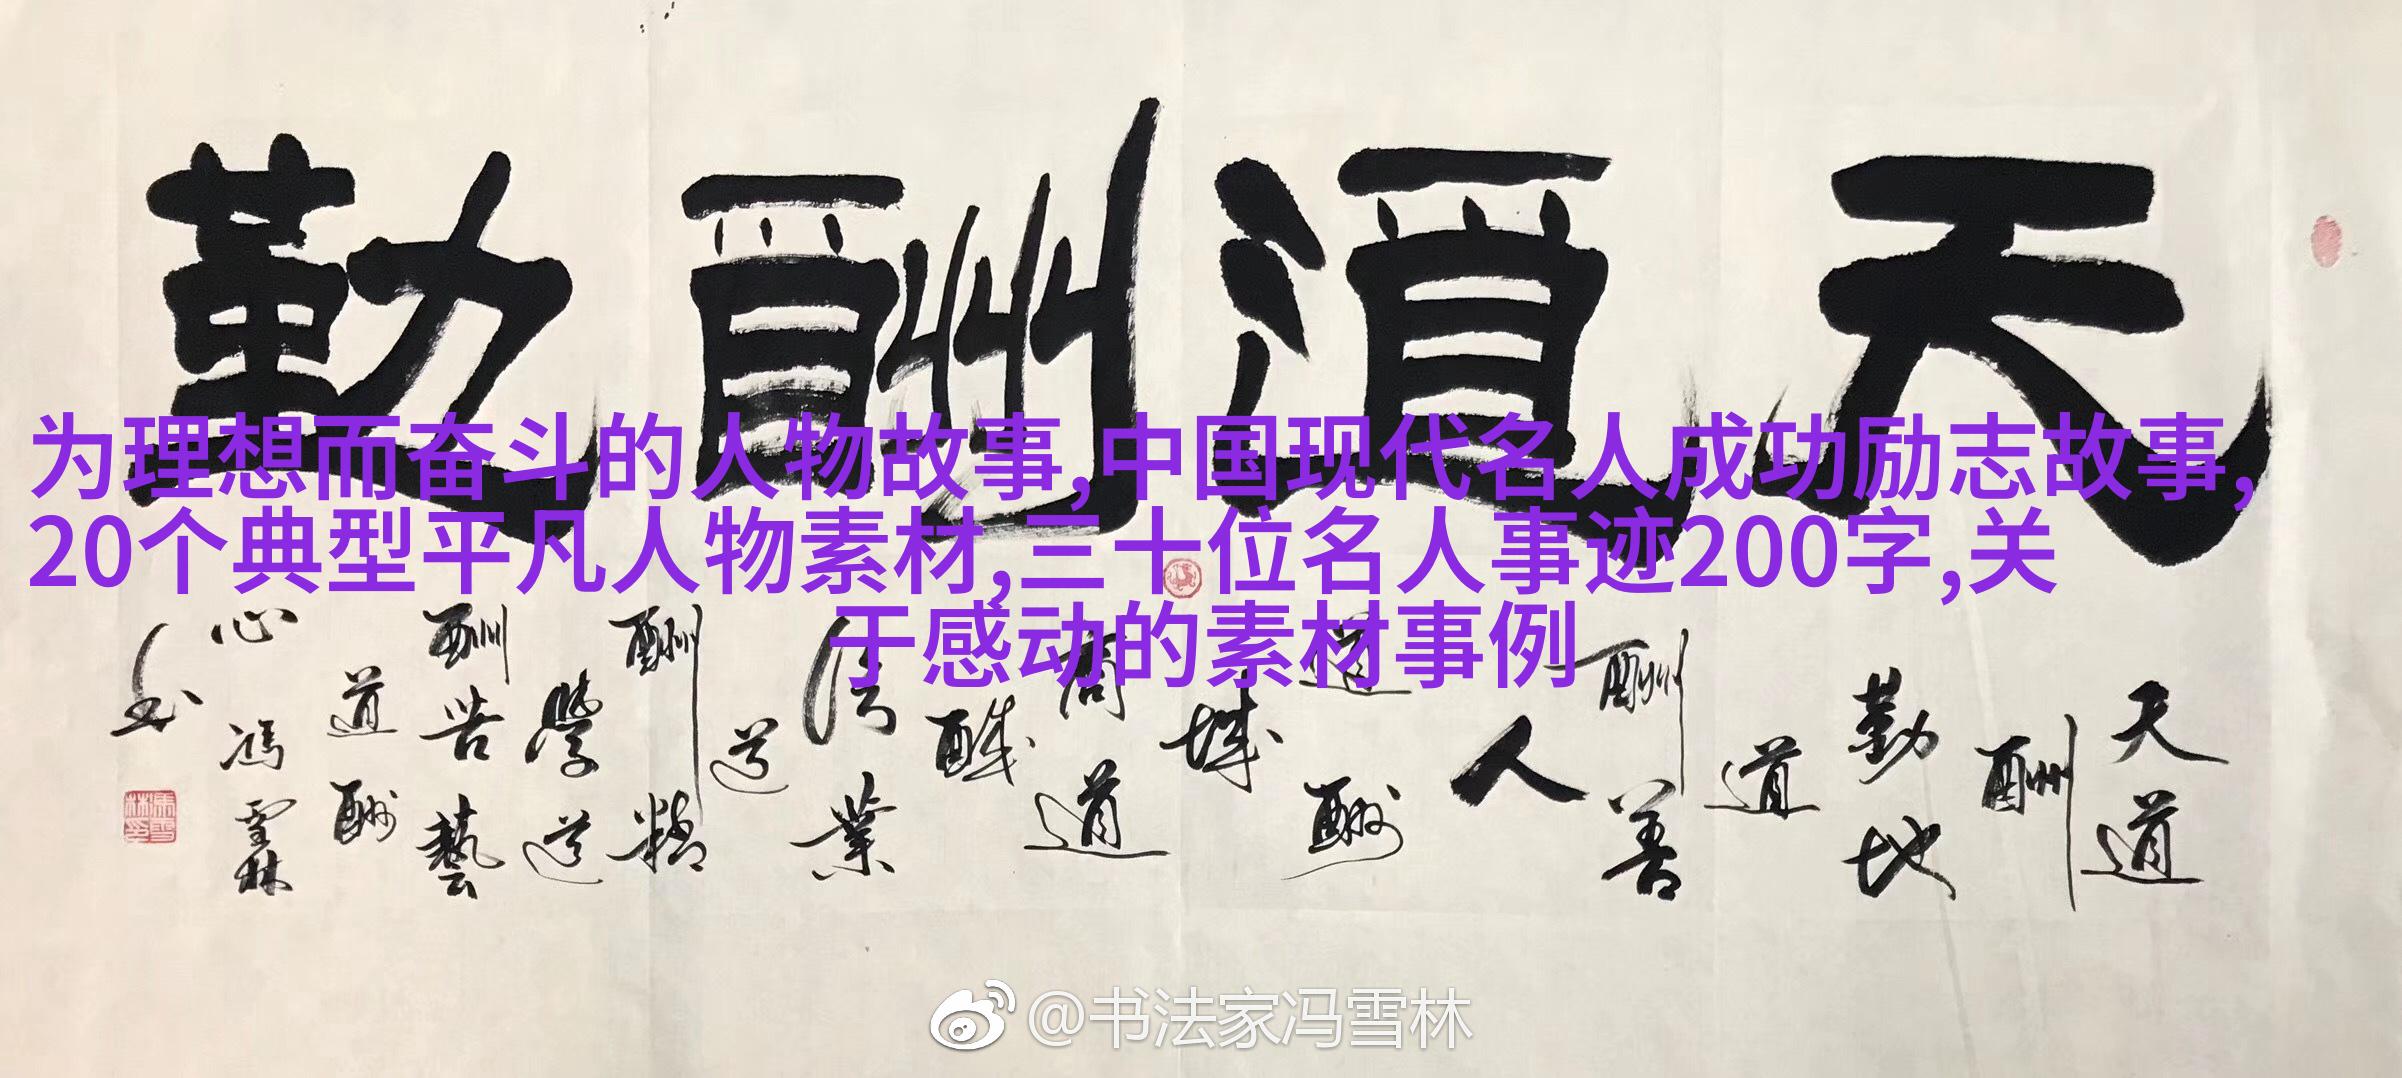 天道酬勤
为理想而奋斗的人物故事,中国现代名人成功励志故事,
20个典型平凡人物素材,三十位名人事迹200字,关
于感动的素材事例
天道
酬
勤地
道
酬善
人
道酬
城
商道
酬
信業
道
酬精
學道
酬苦藝
道酬
心馮雪林
书
@书法家冯雪林